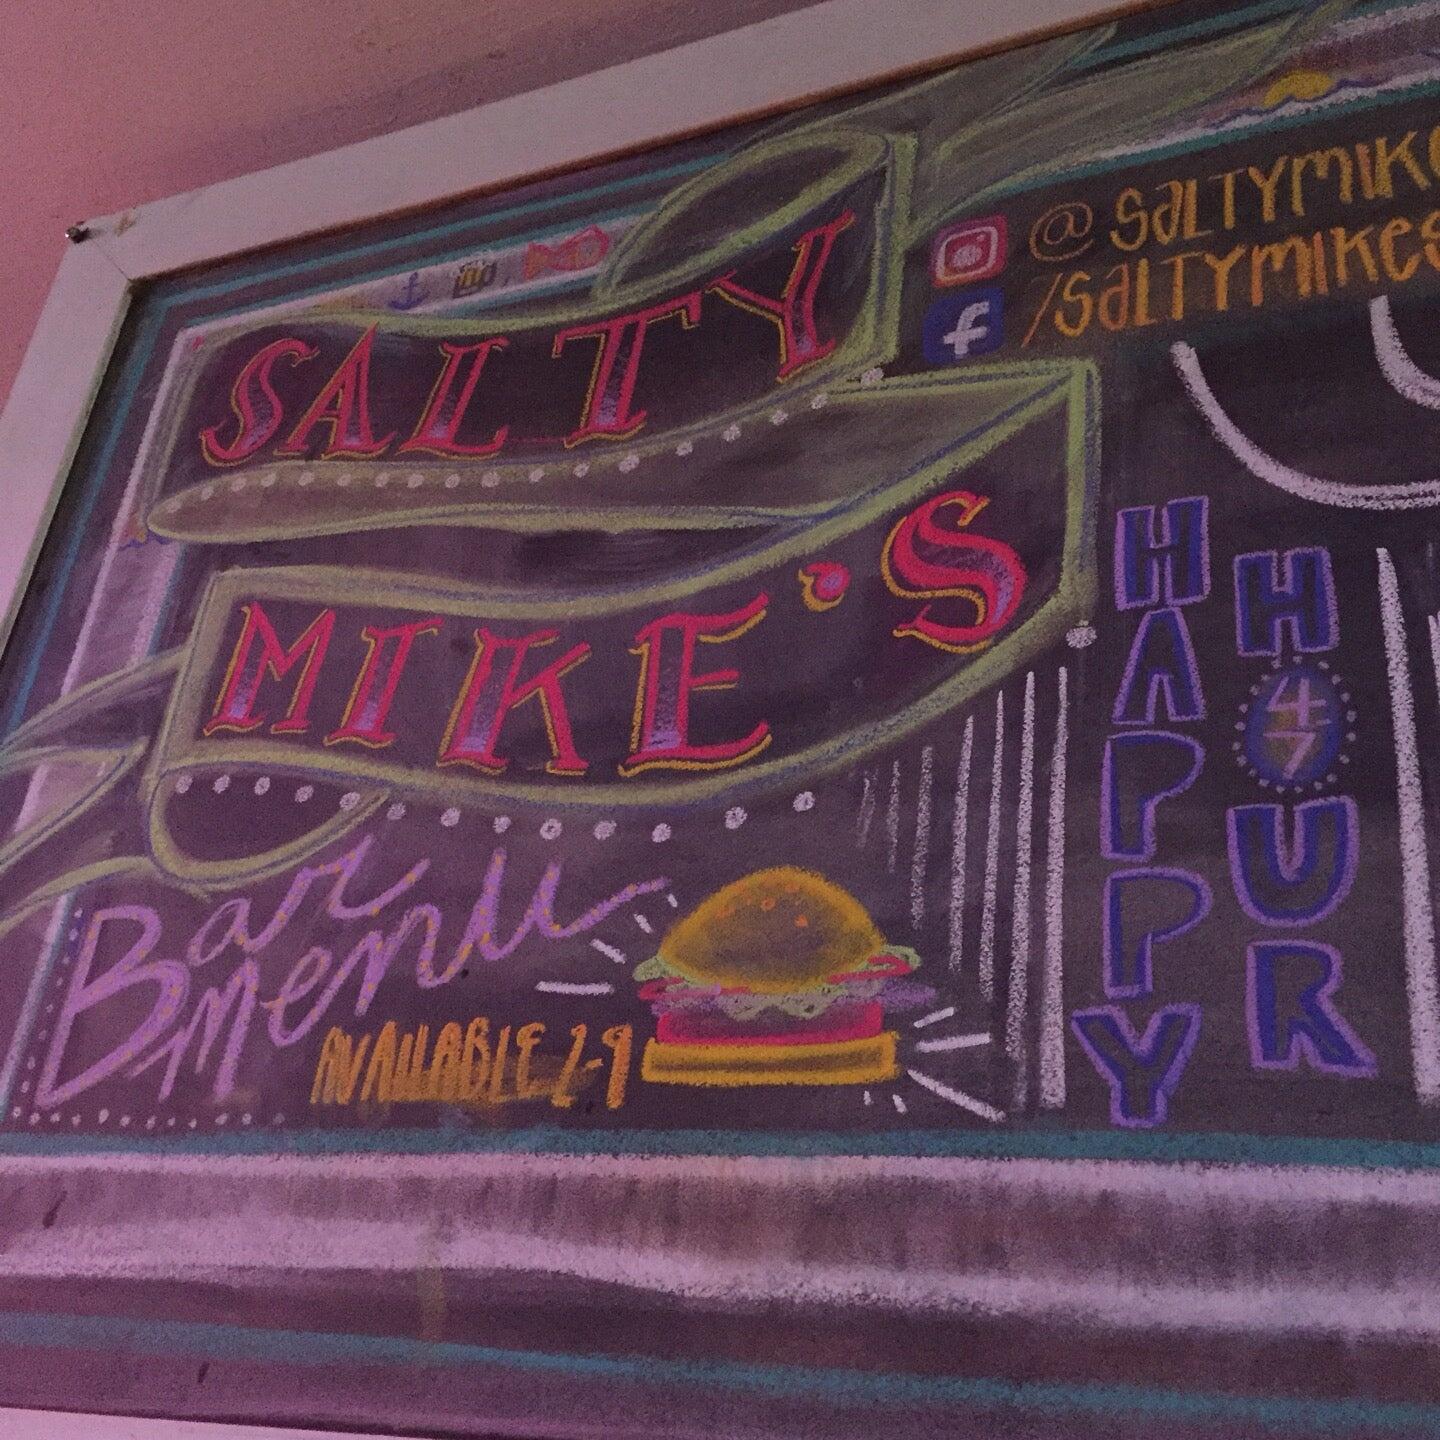 SALTY
MIKE'S
Bar
menu
AVAILABLE 2-9
@SALTYMIKE
/SALTYMIKES
HAPPY
HOUR
4
7